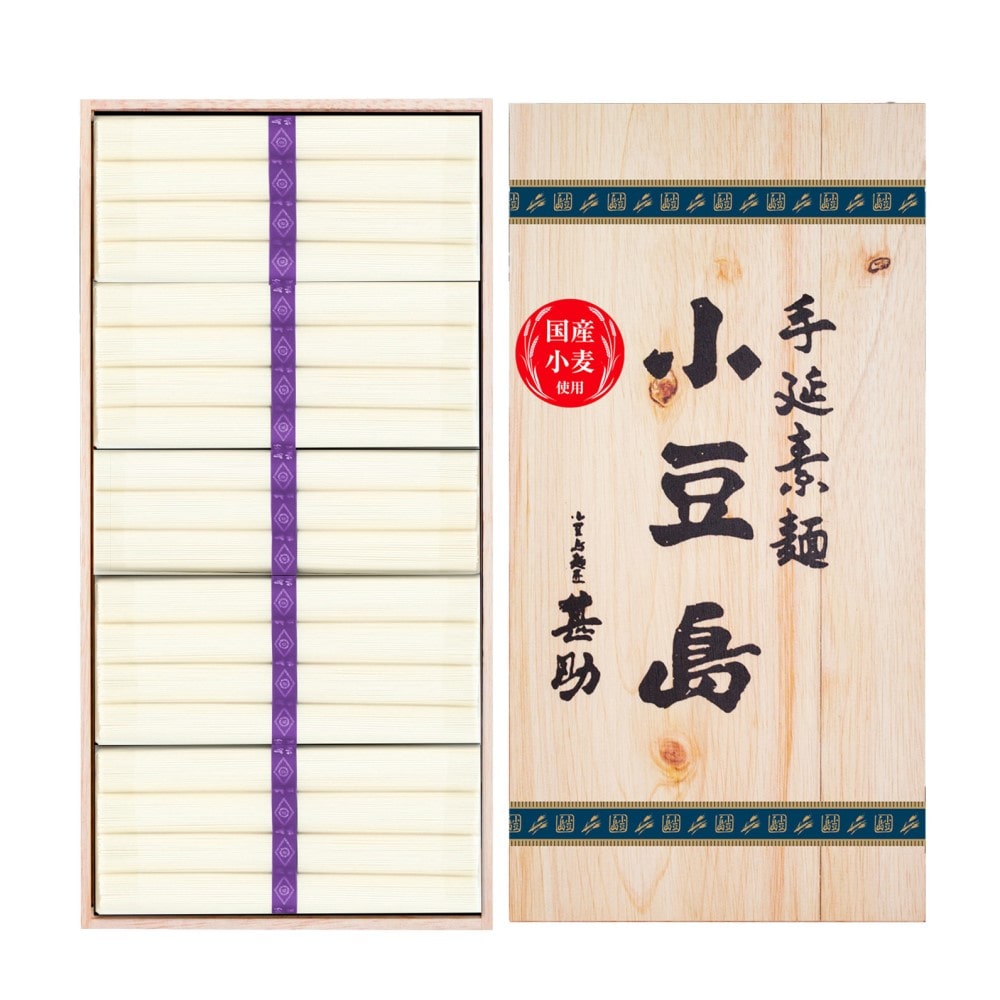 手延素麺
小豆島
国産
小麦
使用
小豆島麺匠
甚助